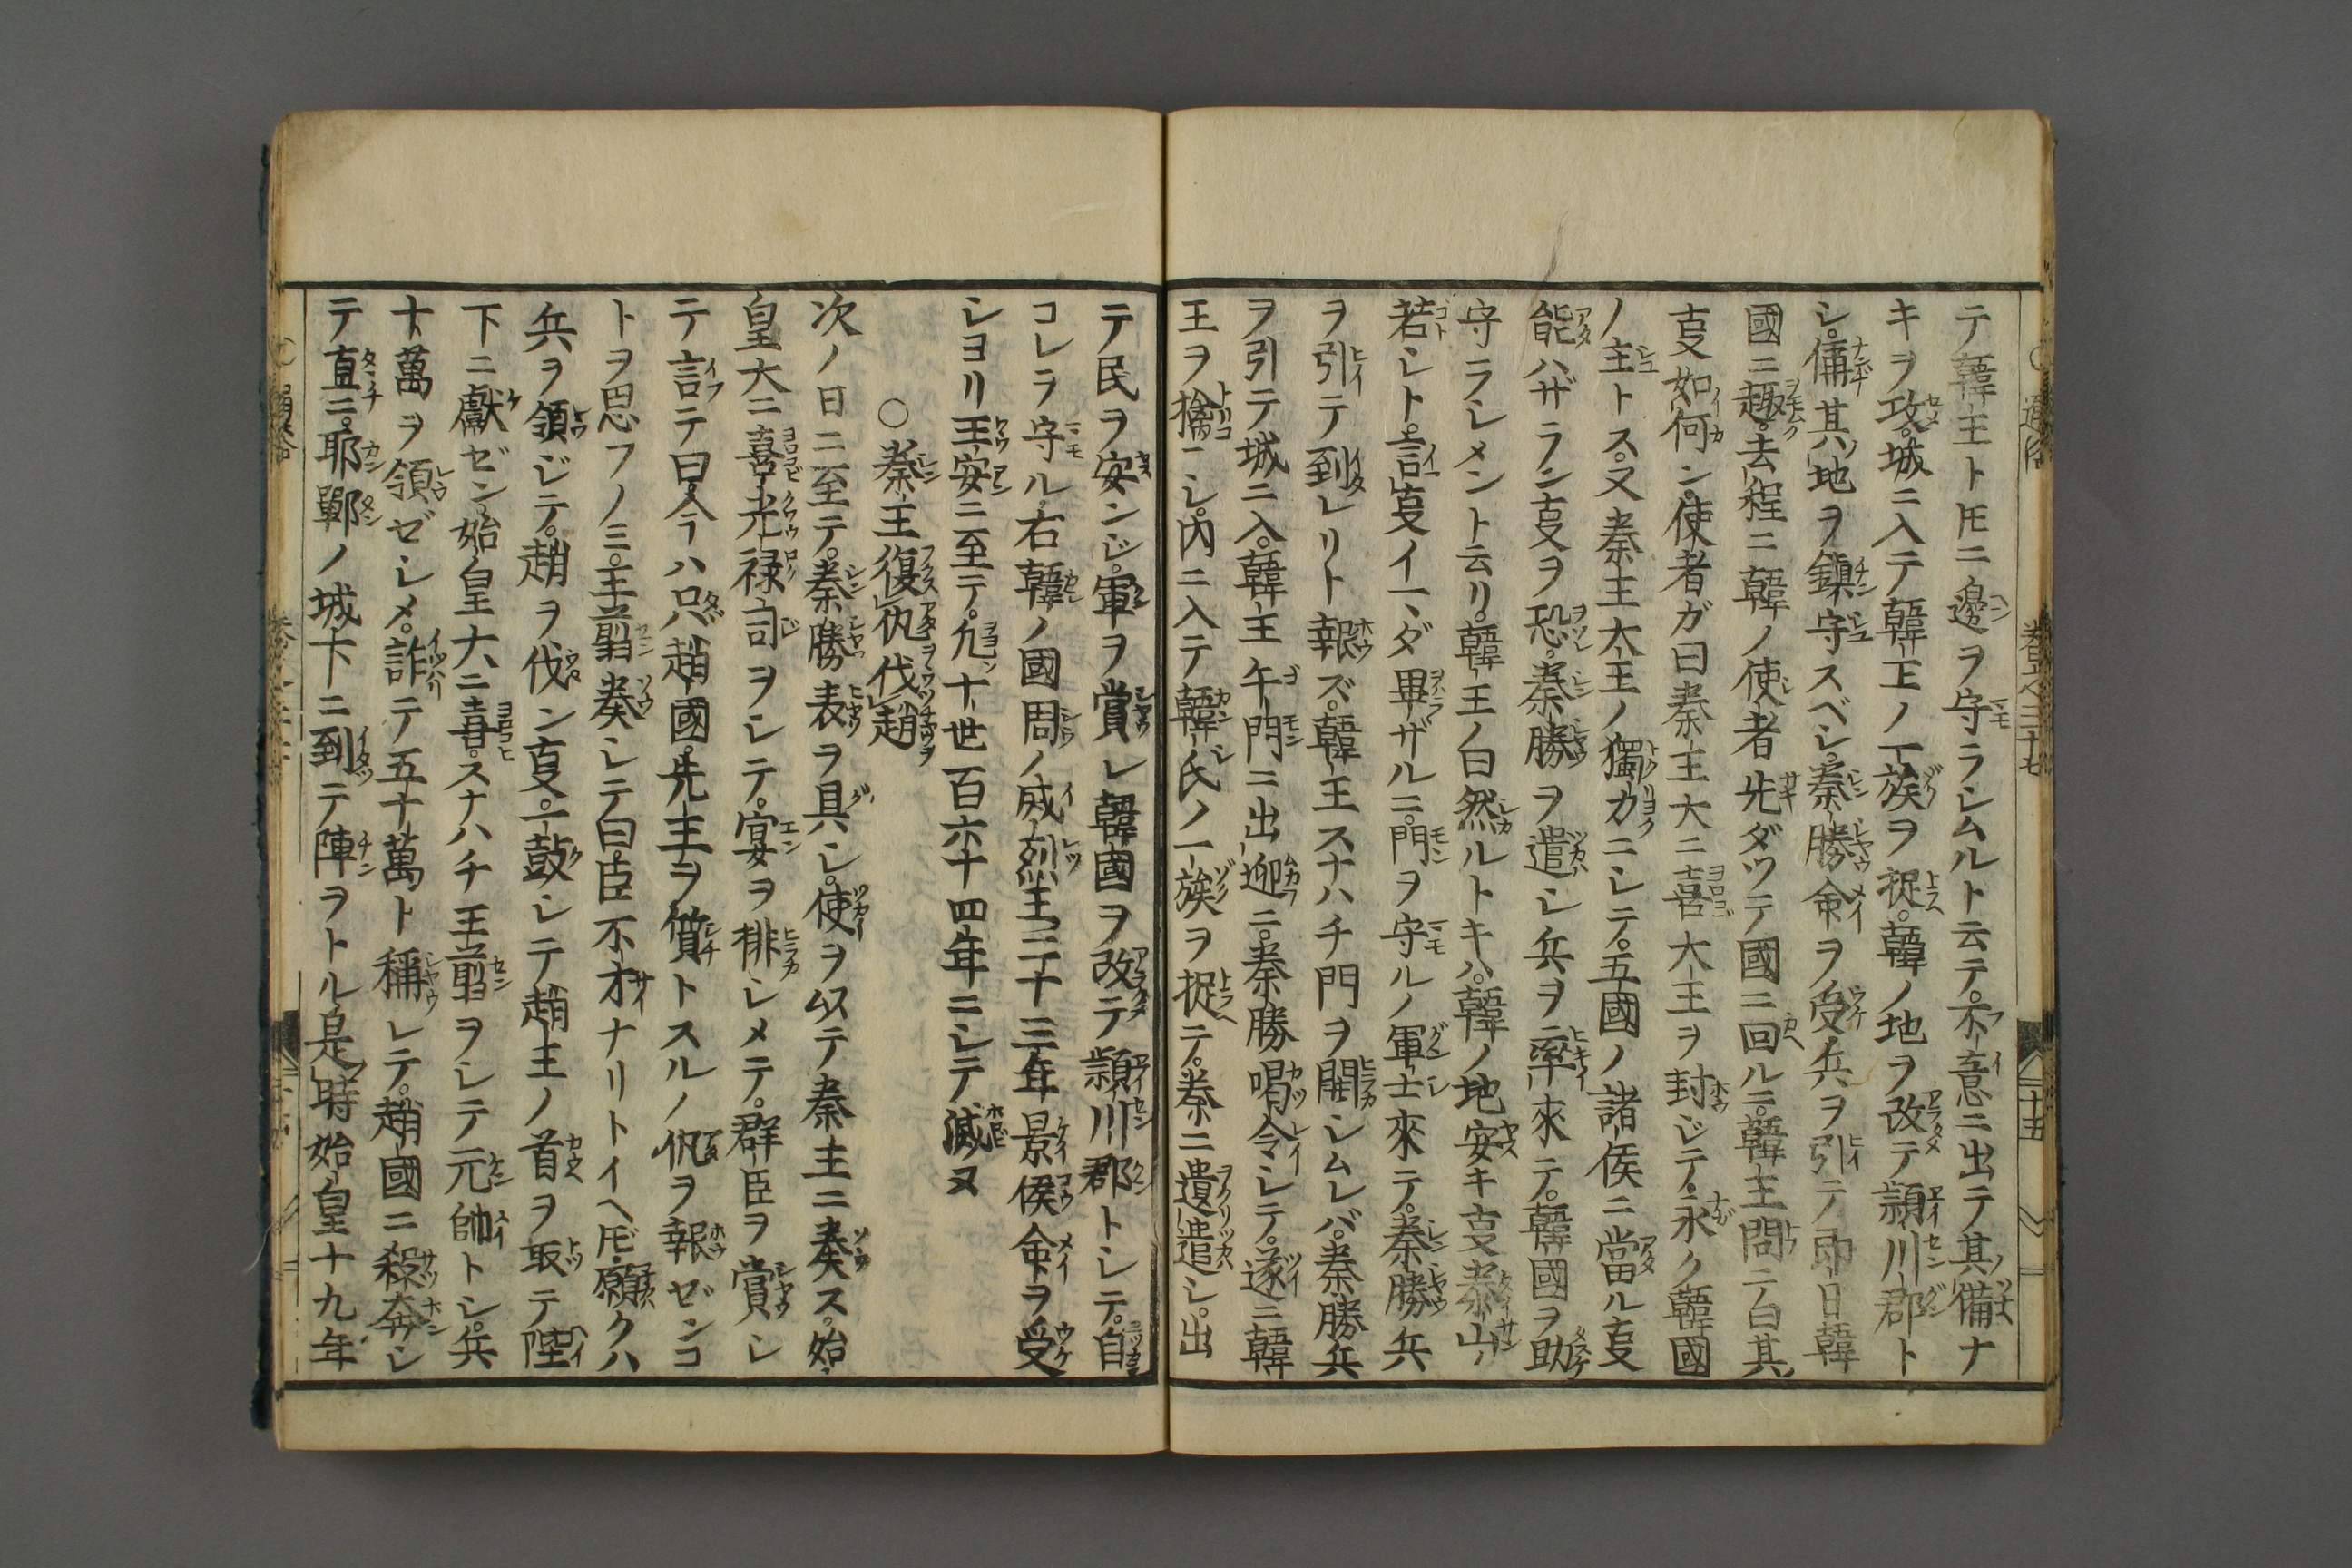 テ韓王ト𪜈ニ邊ヲ守ラシムルト云テ。不意ニ出テ其備ナ
キヲ攻。城ニ入テ韓王ノ一族ヲ捉。韓ノ地ヲ改テ頴川郡ト
シ。儞其地ヲ鎮守スベシ。秦勝命ヲ受兵ヲ引テ即日韓
國ニ趣。去程ニ韓ノ使者先ダツテ國ニ回ルニ。韓王問テ曰其
㕝如何ン。使者ガ曰秦王大ニ喜大王ヲ封ジテ。永ク韓國
ノ主トス。又秦王大王ノ獨力ニシテ。五國ノ諸侯ニ當ル㕝
能ハザラン㕝ヲ恐。秦勝ヲ遣シ兵ヲ率來テ。韓國ヲ助
守ラシメント云リ。韓王ノ曰然ルトキハ。韓ノ地安キ㕝泰山ノ
若シト。言㕝イマダ畢ザルニ。門ヲ守ルノ軍士來テ。秦勝兵
ヲ引テ到レリト報ズ。韓王スナハチ門ヲ開シムレバ。秦勝兵
ヲ引テ城ニ入。韓王午門ニ出迎ニ。秦勝喝令シテ。遂ニ韓
王ヲ擒ニシ。内ニ入テ韓氏ノ一族ヲ捉テ。秦ニ遺遣シ。出
テ民ヲ安ンジ。軍ヲ賞シ韓國ヲ改テ頴川郡トシテ。自
コレヲ守ル。右韓ノ國周ノ威烈王二十三年景侯命ヲ受
シヨリ王安ニ至テ。九十世百六十四年ニシテ滅ヌ
○秦王復仇伐趙
次ノ日ニ至テ。秦勝表ヲ具シ。使ヲ以テ秦王ニ奏ス。始
皇大ニ喜光禄司ヲシテ。宴ヲ排シメテ。群臣ヲ賞シ
テ言テ曰。今ハ只趙國。先王ヲ償トスルノ仇ヲ報ゼンコ
トヲ思フノミ。王翦奏シテ曰。臣不才ナリトイヘ𪜈。願クハ
兵ヲ領ジテ。趙ヲ伐ン㕝。一鼓シテ趙王ノ首ヲ取テ陛
下ニ獻ゼン。始皇大ニ喜。スナハチ王翦ヲシテ元帥トシ。兵
十萬ヲ領ゼシメ。詐テ五十萬ト稱シテ。趙國ニ殺奔シ
テ直ニ。耶鄲ノ城下ニ到テ陣ヲトル是時始皇十九年